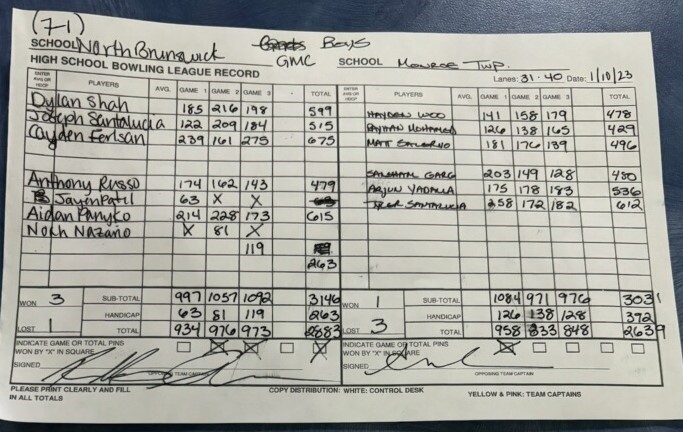 (7-1)
SCHOOL North Brunswick Boys
HIGH SCHOOL BOWLING LEAGUE RECORD GMC SCHOOL Monroe Twp.
Lanes: 31-40 Date: 1/10/23
ENTER AVG OR HDCP PLAYERS AVG. GAME 1 GAME 2 GAME 3 TOTAL ENTER AVG OR HDCP PLAYERS AVG. GAME 1 GAME 2 GAME 3 TOTAL
Dylan Shah 185 216 198 599
Joseph Santalucia 122 209 184 515 HAYDEN WOO 141 158 179 478
Cayden Ferlsan 239 161 275 675 RAYHAN MOHAMED 126 138 165 429
MATT SALERNO 181 176 139 496
Anthony Russo 174 162 143 479 GARG 203 149 128 480
Jayen Patil 63 X X ARJUN YADALLA 175 178 183 536
Aidan Panyko 214 228 173 615 SANTALUCIA 258 172 182 612
Noah Nazario X 81 X
119
263
WON 3 SUB-TOTAL 997 1057 1092 3146 WON 1 SUB-TOTAL 1084 971 976 3031
HANDICAP 63 81 119 263 HANDICAP 126 138 128 392
LOST 1 TOTAL 934 976 973 2883 LOST 3 TOTAL 958 833 848 2639
INDICATE GAME OR TOTAL PINS WON BY "X" IN SQUARE X X X INDICATE GAME OR TOTAL PINS WON BY "X" IN SQUARE X
SIGNED SIGNED
OPPOSING TEAM CAPTAIN OPPOSING TEAM CAPTAIN
PLEASE PRINT CLEARLY AND FILL IN ALL TOTALS COPY DISTRIBUTION: WHITE: CONTROL DESK YELLOW & PINK: TEAM CAPTAINS